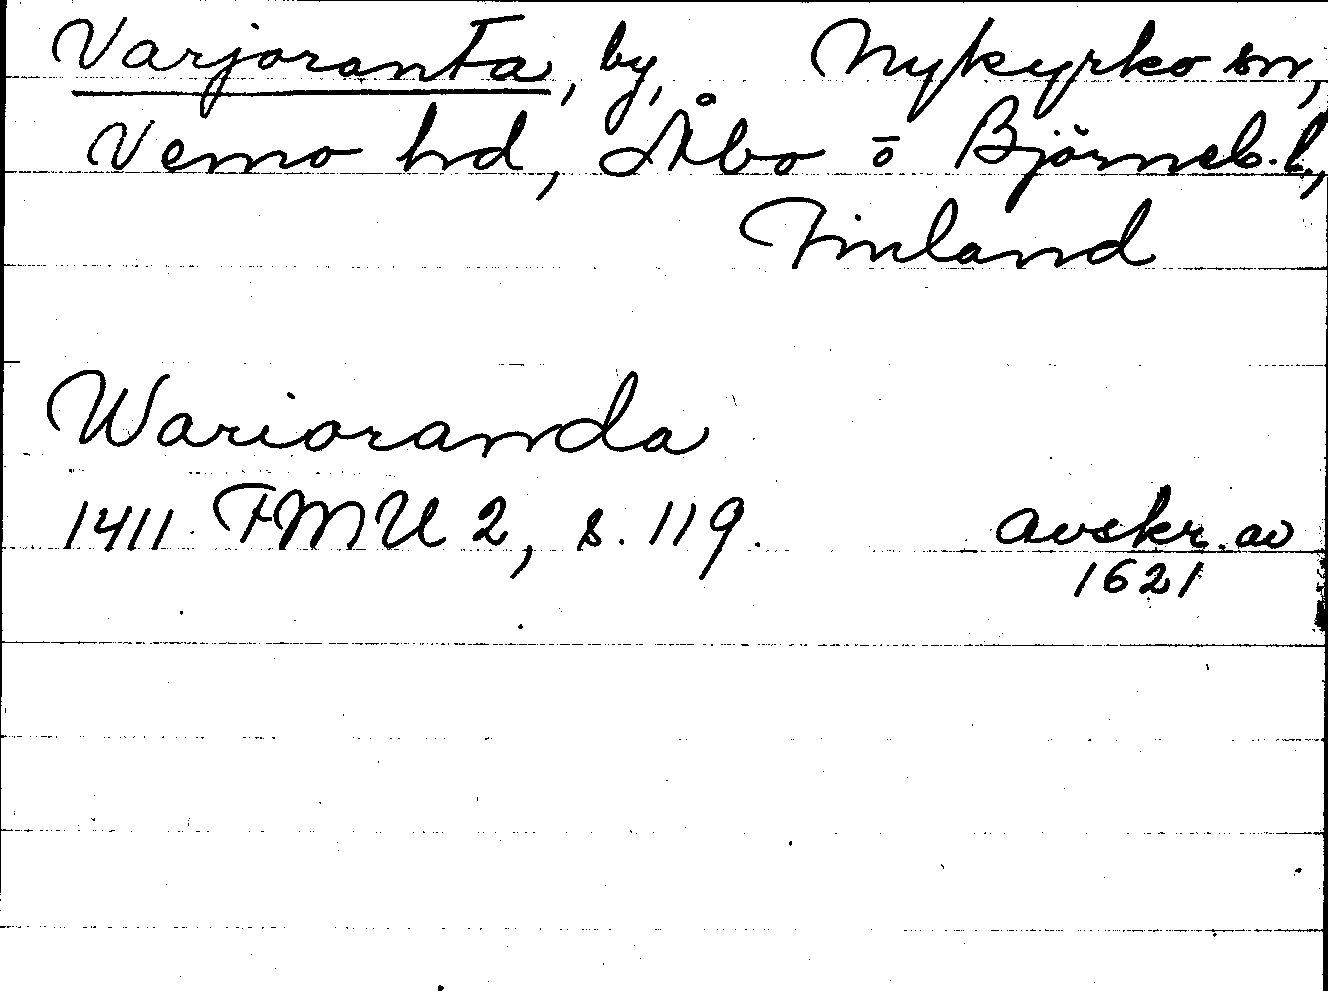 Varjoranta, by, Nykyrko sn,
Vemo hd, Åbo o Björneb. l.,
Finland
Warioranda
1411 FMU 2, s. 119. avskr. av
1621